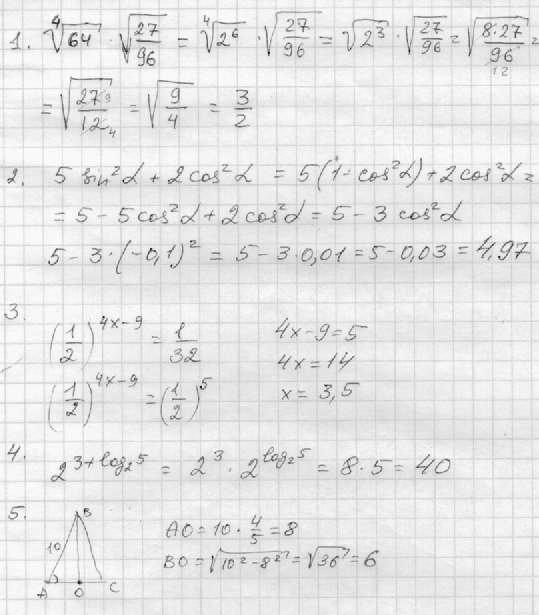 1. ⁴√64 · √(27/96) = ⁴√(2⁶) · √(27/96) = √(2³) · √(27/96) = √(8·27/96) 12 =
= √(27 9/12 4) = √(9/4) = 3/2
2. 5 sin²α + 2cos²α = 5(1 - cos²α) + 2cos²α =
= 5 - 5cos²α + 2cos²α = 5 - 3 cos²α
5 - 3·(-0,1)² = 5 - 3·0,01 = 5 - 0,03 = 4,97
3.
(1/2)^(4x-9) = 1/32
(1/2)^(4x-9) = (1/2)^5
4x-9=5
4x=14
x = 3,5
4. 2^(3+log₂5) = 2³ · 2^(log₂5) = 8·5 = 40
5.
B
10
A O C
AO = 10 · 4/5 = 8
BO = √(10² - 8²) = √36 = 6